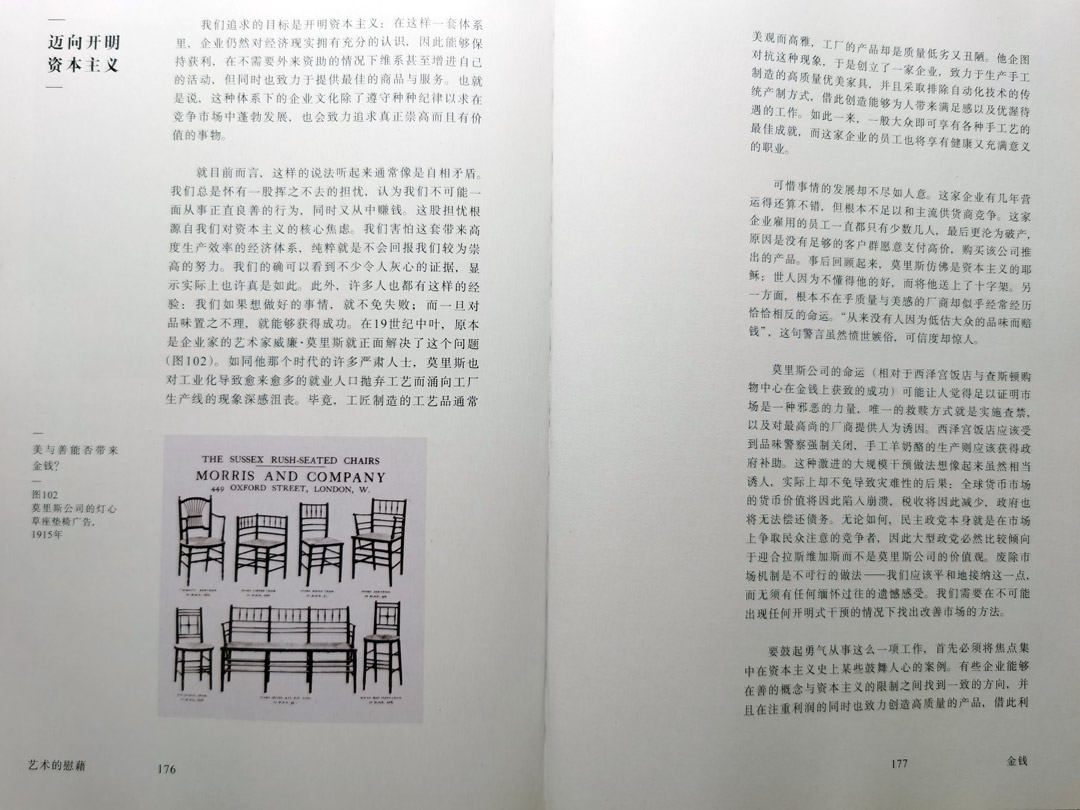 迈向开明
资本主义
我们追求的目标是开明资本主义：在这样一套体系
里，企业仍然对经济现实拥有充分的认识，因此能够保
持获利，在不需要外来资助的情况下维系甚至增进自己
的活动，但同时也致力于提供最佳的商品与服务。也就
是说，这种体系下的企业文化除了遵守种种纪律以求在
竞争市场中蓬勃发展，也会致力追求真正崇高而且有价
值的事物。
就目前而言，这样的说法听起来通常像是自相矛盾。
我们总是怀有一股挥之不去的担忧，认为我们不可能一
面从事正直良善的行为，同时又从中赚钱。这股担忧根
源自我们对资本主义的核心焦虑。我们害怕这套带来高
度生产效率的经济体系，纯粹就是不会回报我们较为崇
高的努力。我们的确可以看到不少令人灰心的证据，显
示实际上也许真是如此。此外，许多人也都有这样的经
验：我们如果想做好的事情，就不免失败；而一旦对
品味置之不理，就能够获得成功。在19世纪中叶，原本
是企业家的艺术家威廉·莫里斯就正面解决了这个问题
（图102）。如同他那个时代的许多严肃人士，莫里斯也
对工业化导致愈来愈多的就业人口抛弃工艺而涌向工厂
生产线的现象深感沮丧。毕竟，工匠制造的工艺品通常
美与善能否带来
金钱？
图102
莫里斯公司的灯心
草座垫椅广告，
1915年
THE SUSSEX RUSH-SEATED CHAIRS
MORRIS AND COMPANY
449 OXFORD STREET, LONDON, W.
艺术的慰藉
176
美观而高雅，工厂的产品却是质量低劣又丑陋。他企图
对抗这种现象，于是创立了一家企业，致力于生产手工
制造的高质量优美家具，并且采取排除自动化技术的传
统产制方式，借此创造能够为人带来满足感以及优渥待
遇的工作。如此一来，一般大众即可享有各种手工艺的
最佳成就，而这家企业的员工也将享有健康又充满意义
的职业。
可惜事情的发展却不尽如人意。这家企业有几年营
运得还算不错，但根本不足以和主流供货商竞争。这家
企业雇用的员工一直都只有少数几人，最后更沦为破产，
原因是没有足够的客户群愿意支付高价，购买该公司推
出的产品。事后回顾起来，莫里斯仿佛是资本主义的耶
稣：世人因为不懂得他的好，而将他送上了十字架。另
一方面，根本不在乎质量与美感的厂商却似乎经常经历
恰恰相反的命运。“从来没有人因为低估大众的品味而赔
钱”，这句警言虽然愤世嫉俗，可信度却惊人。
莫里斯公司的命运（相对于西泽宫饭店与查斯顿购
物中心在金钱上获致的成功）可能让人觉得足以证明市
场是一种邪恶的力量，唯一的救赎方式就是实施查禁，
以及对最高尚的厂商提供人为诱因。西泽宫饭店应该受
到品味警察强制关闭，手工羊奶酪的生产则应该获得政
府补助。这种激进的大规模干预做法想像起来虽然相当
诱人，实际上却不免导致灾难性的后果：全球货币市场
的货币价值将因此陷入崩溃，税收将因此减少，政府也
将无法偿还债务。无论如何，民主政党本身就是在市场
上争取民众注意的竞争者，因此大型政党必然比较倾向
于迎合拉斯维加斯而不是莫里斯公司的价值观。废除市
场机制是不可行的做法——我们应该平和地接纳这一点，
而无须有任何缅怀过往的遗憾感受。我们需要在不可能
出现任何开明式干预的情况下找出改善市场的方法。
要鼓起勇气从事这么一项工作，首先必须将焦点集
中在资本主义史上某些鼓舞人心的案例。有些企业能够
在善的概念与资本主义的限制之间找到一致的方向，并
且在注重利润的同时也致力创造高质量的产品，借此利
177
金钱